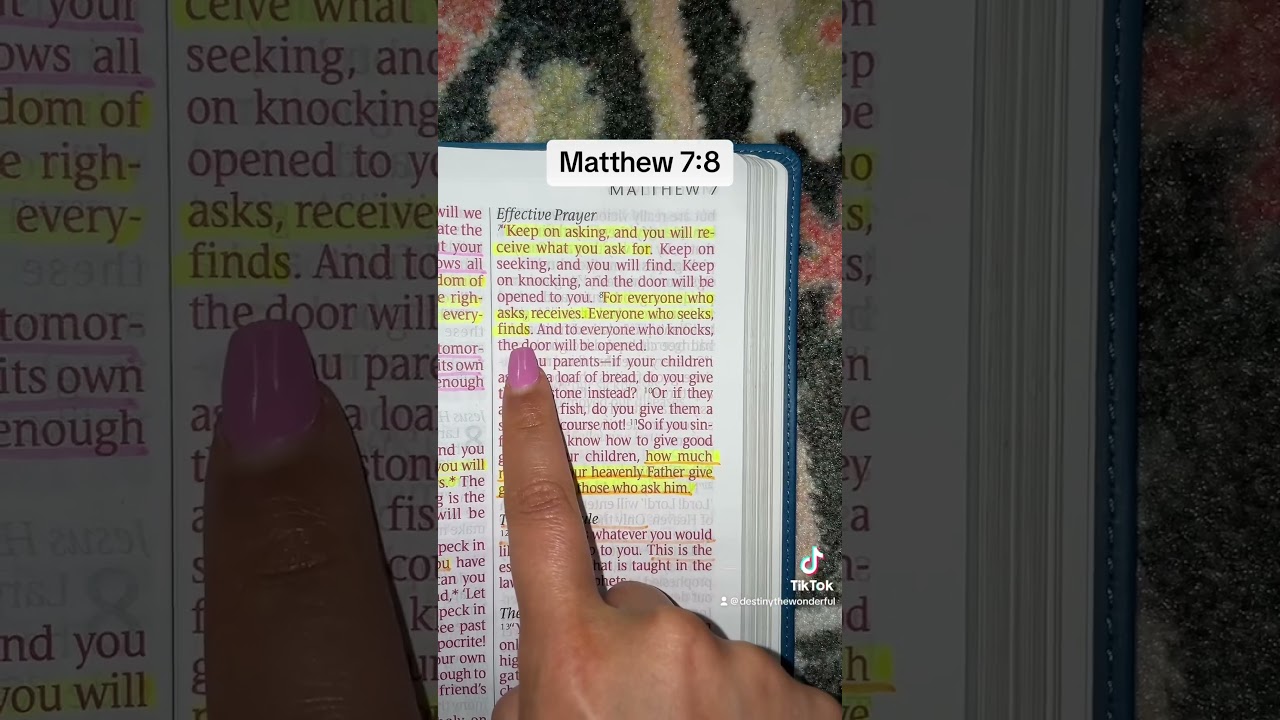 Matthew 7:8
MATTHEW 7
Effective Prayer
7“Keep on asking, and you will re-
ceive what you ask for. Keep on
seeking, and you will find. Keep
on knocking, and the door will be
opened to you. 8For everyone who
asks, receives. Everyone who seeks,
finds. And to everyone who knocks,
the door will be opened.
parents—if your children
a loaf of bread, do you give
stone instead? 10Or if they
fish, do you give them a
course not! 11So if you sin-
know how to give good
children, how much
heavenly Father give
those who ask him.
12 whatever you would
to you. This is the
that is taught in the
13
will we
ate the
your
ows all
dom of
e righ-
every-
tomor-
its own
enough
nd you
you will
s.* The
g is the
will be
peck in
have
can you
d,* ‘Let
peck in
ee past
pocrite!
our own
ough to
friend’s
TikTok
@destinythewonderful
ceive what
seeking, and
on knocking
opened to
asks, receive
finds. And to
the door will